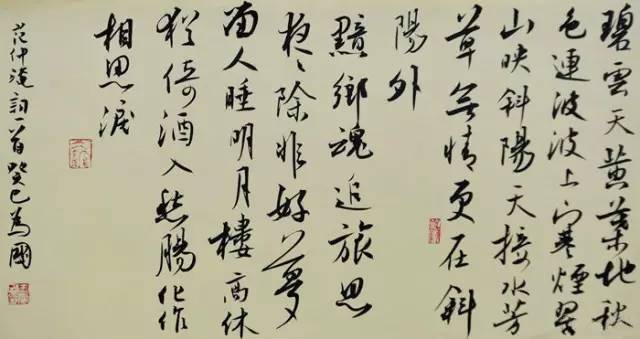 碧雲天黄葉地秋
色連波波上寒煙翠
山映斜陽天接水芳
草無情更在斜
陽外
黯鄉魂追旅思
夜々除非好夢
留人睡明月樓高休
獨倚酒入愁腸化作
相思淚
范仲淹詞一首癸巳為國